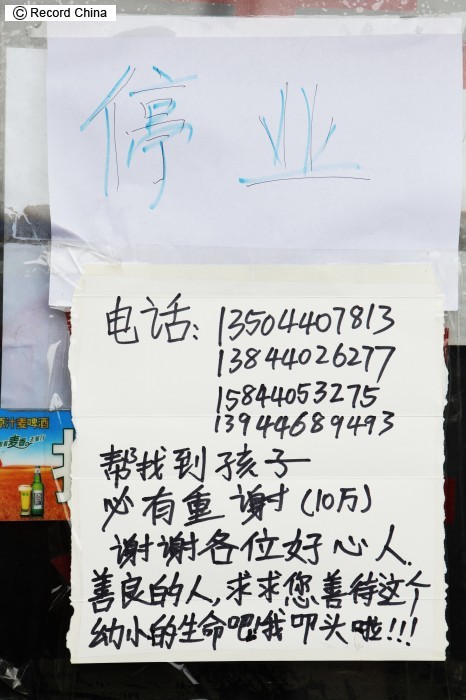 © Record China
停业
电话: 13504407813
13844026277
15844053275
13944689493
原汁麦啤酒
帮找到孩子
必有重谢(10万)
谢谢各位好心人.
善良的人,求求您善待这个
幼小的生命吧!我叩头啦!!!